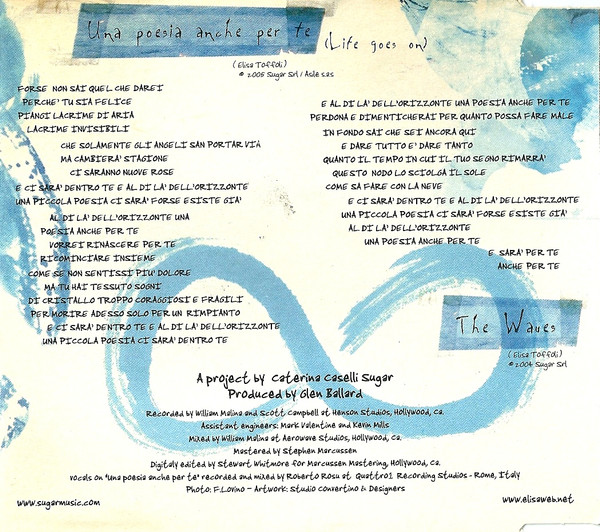 Una poesia anche per te (Life goes on)
(Elisa Toffoli)
© 2005 Sugar Srl / Asile sas
FORSE NON SAI QUEL CHE DAREI
PERCHE' TU SIA FELICE
PIANGI LACRIME DI ARIA
LACRIME INVISIBILI
CHE SOLAMENTE GLI ANGELI SAN PORTAR VIA
MA CAMBIERA' STAGIONE
CI SARANNO NUOVE ROSE
E CI SARA' DENTRO TE E AL DI LA' DELL'ORIZZONTE
UNA PICCOLA POESIA CI SARA' FORSE ESISTE GIA'
AL DI LA' DELL'ORIZZONTE UNA
POESIA ANCHE PER TE
VORREI RINASCERE PER TE
RICOMINCIARE INSIEME
COME SE NON SENTISSI PIU' DOLORE
MA TU HAI TESSUTO SOGNI
DI CRISTALLO TROPPO CORAGGIOSI E FRAGILI
PER MORIRE ADESSO SOLO PER UN RIMPIANTO
E CI SARA' DENTRO TE E AL DI LA' DELL'ORIZZONTE
UNA PICCOLA POESIA CI SARA' DENTRO TE
E AL DI LA' DELL'ORIZZONTE UNA POESIA ANCHE PER TE
PERDONA E DIMENTICHERAI PER QUANTO POSSA FARE MALE
IN FONDO SAI CHE SEI ANCORA QUI
E DARE TUTTO E' DARE TANTO
QUANTO IL TEMPO IN CUI IL TUO SEGNO RIMARRA'
QUESTO NODO LO SCIOLGA IL SOLE
COME SA FARE CON LA NEVE
E CI SARA' DENTRO TE E AL DI LA' DELL'ORIZZONTE
UNA PICCOLA POESIA CI SARA' FORSE ESISTE GIA'
AL DI LA' DELL'ORIZZONTE
UNA POESIA ANCHE PER TE
E SARA' PER TE
ANCHE PER TE
The Waves
(Elisa Toffoli)
© 2004 Sugar Srl
A project by Caterina Caselli Sugar
Produced by Glen Ballard
Recorded by William Malina and Scott Campbell at Henson Studios, Hollywood, Ca.
Assistant engineers: Mark Valentine and Kevin Mills
Mixed by William Malina at Aerowave Studios, Hollywood, Ca.
Mastered by Stephen Marcussen
Digitaly edited by Stewart Whitmore for Marcussen Mastering, Hollywood, Ca.
vocals on "una poesia anche per te" recorded and mixed by Roberto Rosu at Quattro1 Recording Studios - Rome, Italy
Photo: F.Lovino - Artwork: Studio Convertino & Designers
www.sugarmusic.com
www.elisaweb.net